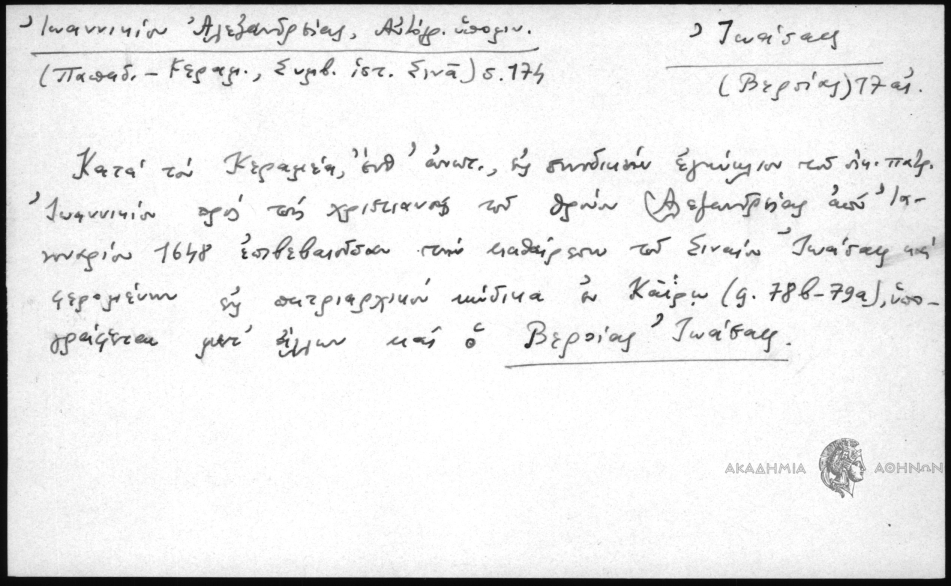 Ἰωαννικίου Ἀλεξανδρείας, Αὐτόγρ. ὑπομν.
(Παπαδ. - Κεραμ., Συμβ. ἱστ. Σινᾶ) σ. 174
Ἰωάσαφ
(Βεροίας) 17 αἰ.
Κατά τόν Κεραμέα, ἔνθ' ἀνωτ., εἰς συνοδικήν ἐγκύκλιον τοῦ οἰκ. πατρ.
Ἰωαννικίου πρός τούς χριστιανούς τοῦ θρόνου Ἀλεξανδρείας ἀπό Ἰα-
νουαρίου 1648 ἐπιβεβαιοῦσαν τήν καθαίρεσιν τοῦ Σιναίου Ἰωάσαφ καί
φερομένην εἰς πατριαρχικόν κώδικα ἐν Καΐρῳ (φ. 78b-79a), ὑπο-
γράφεται μετ' ἄλλων καί ὁ Βεροίας Ἰωάσαφ.
ΑΚΑΔΗΜΙΑ ΑΘΗΝΩΝ